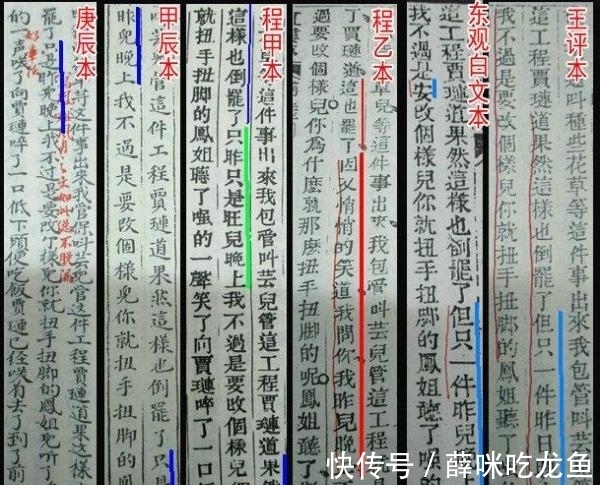 庚辰本
等这件事出来我管保叫芸兒管这件工程贾璉道果这樣
罷了只昨兒晚上我不过是要改个樣兒你就扭手扭脚的鳳姐兒听了
的一声咲了向贾璉啐了一口低下頭便吃飯贾璉已经咲着去了到了前
甲辰本
管這件工程賈璉道果然這樣也倒罷了只是
昨兒晚上我不過是要改個樣兒你就扭手扭脚的
程甲本
這件事出來我包管叫芸兒管這工程賈璉道果然
這樣也倒罷了只昨只是旺兒晚上我不過是要改個樣兒你
就扭手扭脚的鳳姐聽了嗤的一聲笑了向賈璉啐了一口
程乙本
草兒等這件事出來我包管叫芸兒管這工程
了賈璉道這也罷了因又悄悄的笑道我問你我昨兒晚
過是要改個樣兒你為什麽就那麽扭手扭脚的呢鳳姐聽了
东观白文本
這工程賈璉道果然這樣也倒罷了但只一件昨兒
我不過是安改個樣兒你就扭手扭脚的鳳姐聽了嗤的
王评本
叫種些花草等這件事出來我包管叫芸
工程賈璉道果然這樣也倒罷了但只一件昨日
我不過是要改個樣兒你就扭手扭脚的鳳姐聽了
快传号／薛咪吃龙鱼